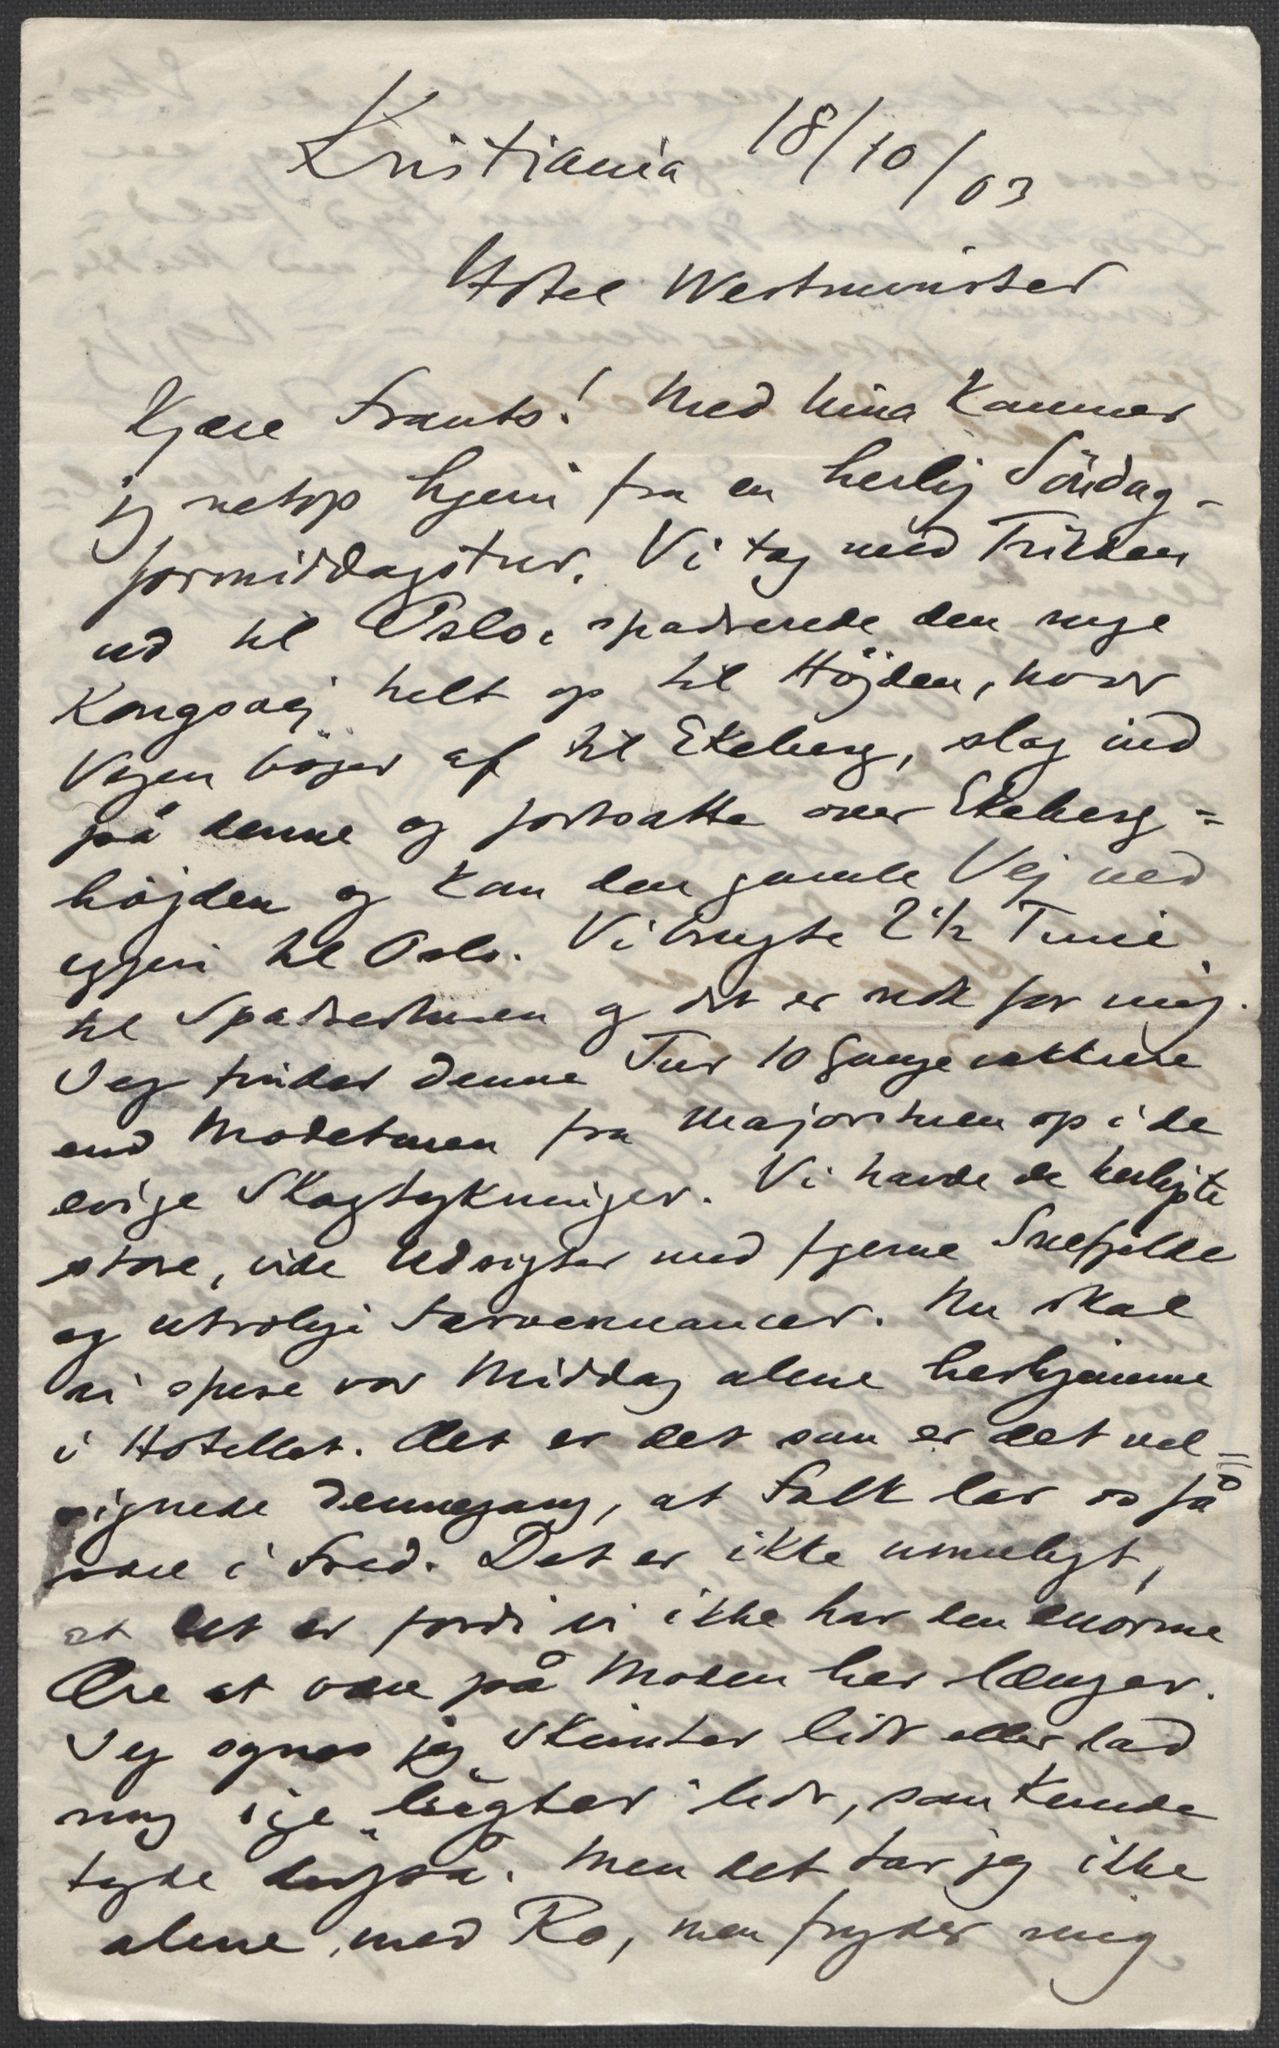 Kristiania 18/10/03
Hotel Westminster
Kjære Frants! Med Nina kommer
jeg netop hjem fra en herlig Söndag-
formiddagstur. Vi tog med Trikken
ud til Oslo, spadserede den nye
Kongsvej helt op til Höjden, hvor
Vejen böjer af til Ekeberg, slog ind
på denne og fortsatte over Ekeberg=
höjden og kom den gamle Vej ned
igjen til Oslo. Vi brugte 2 1/2 Time
til Spadserturen og det er nok for mig.
Jeg finder denne Tur 10 Gange vakkrere
end Modeturen fra Majorstuen op i de
evige Skogtykninger. Vi havde de herligste
store, vide Udsigter med fjerne Snefjelde
og utrolige Farvenuancer. Nu skal
vi spise vor Middag alene herhjemme
i Hotellet. Det er det som er det vel=
signede dennegang, at Folk lar os få
være i Fred. Det er ikke umuligt,
at det er fordi vi ikke har den enorme
Ære at være på Moden her længer.
Jeg synes jeg skimter lidt eller lad
mig sige "lugter" lidt, som kunde
tyde derpå. Men det tar jeg ikke
alene med Ro, men fryder mig